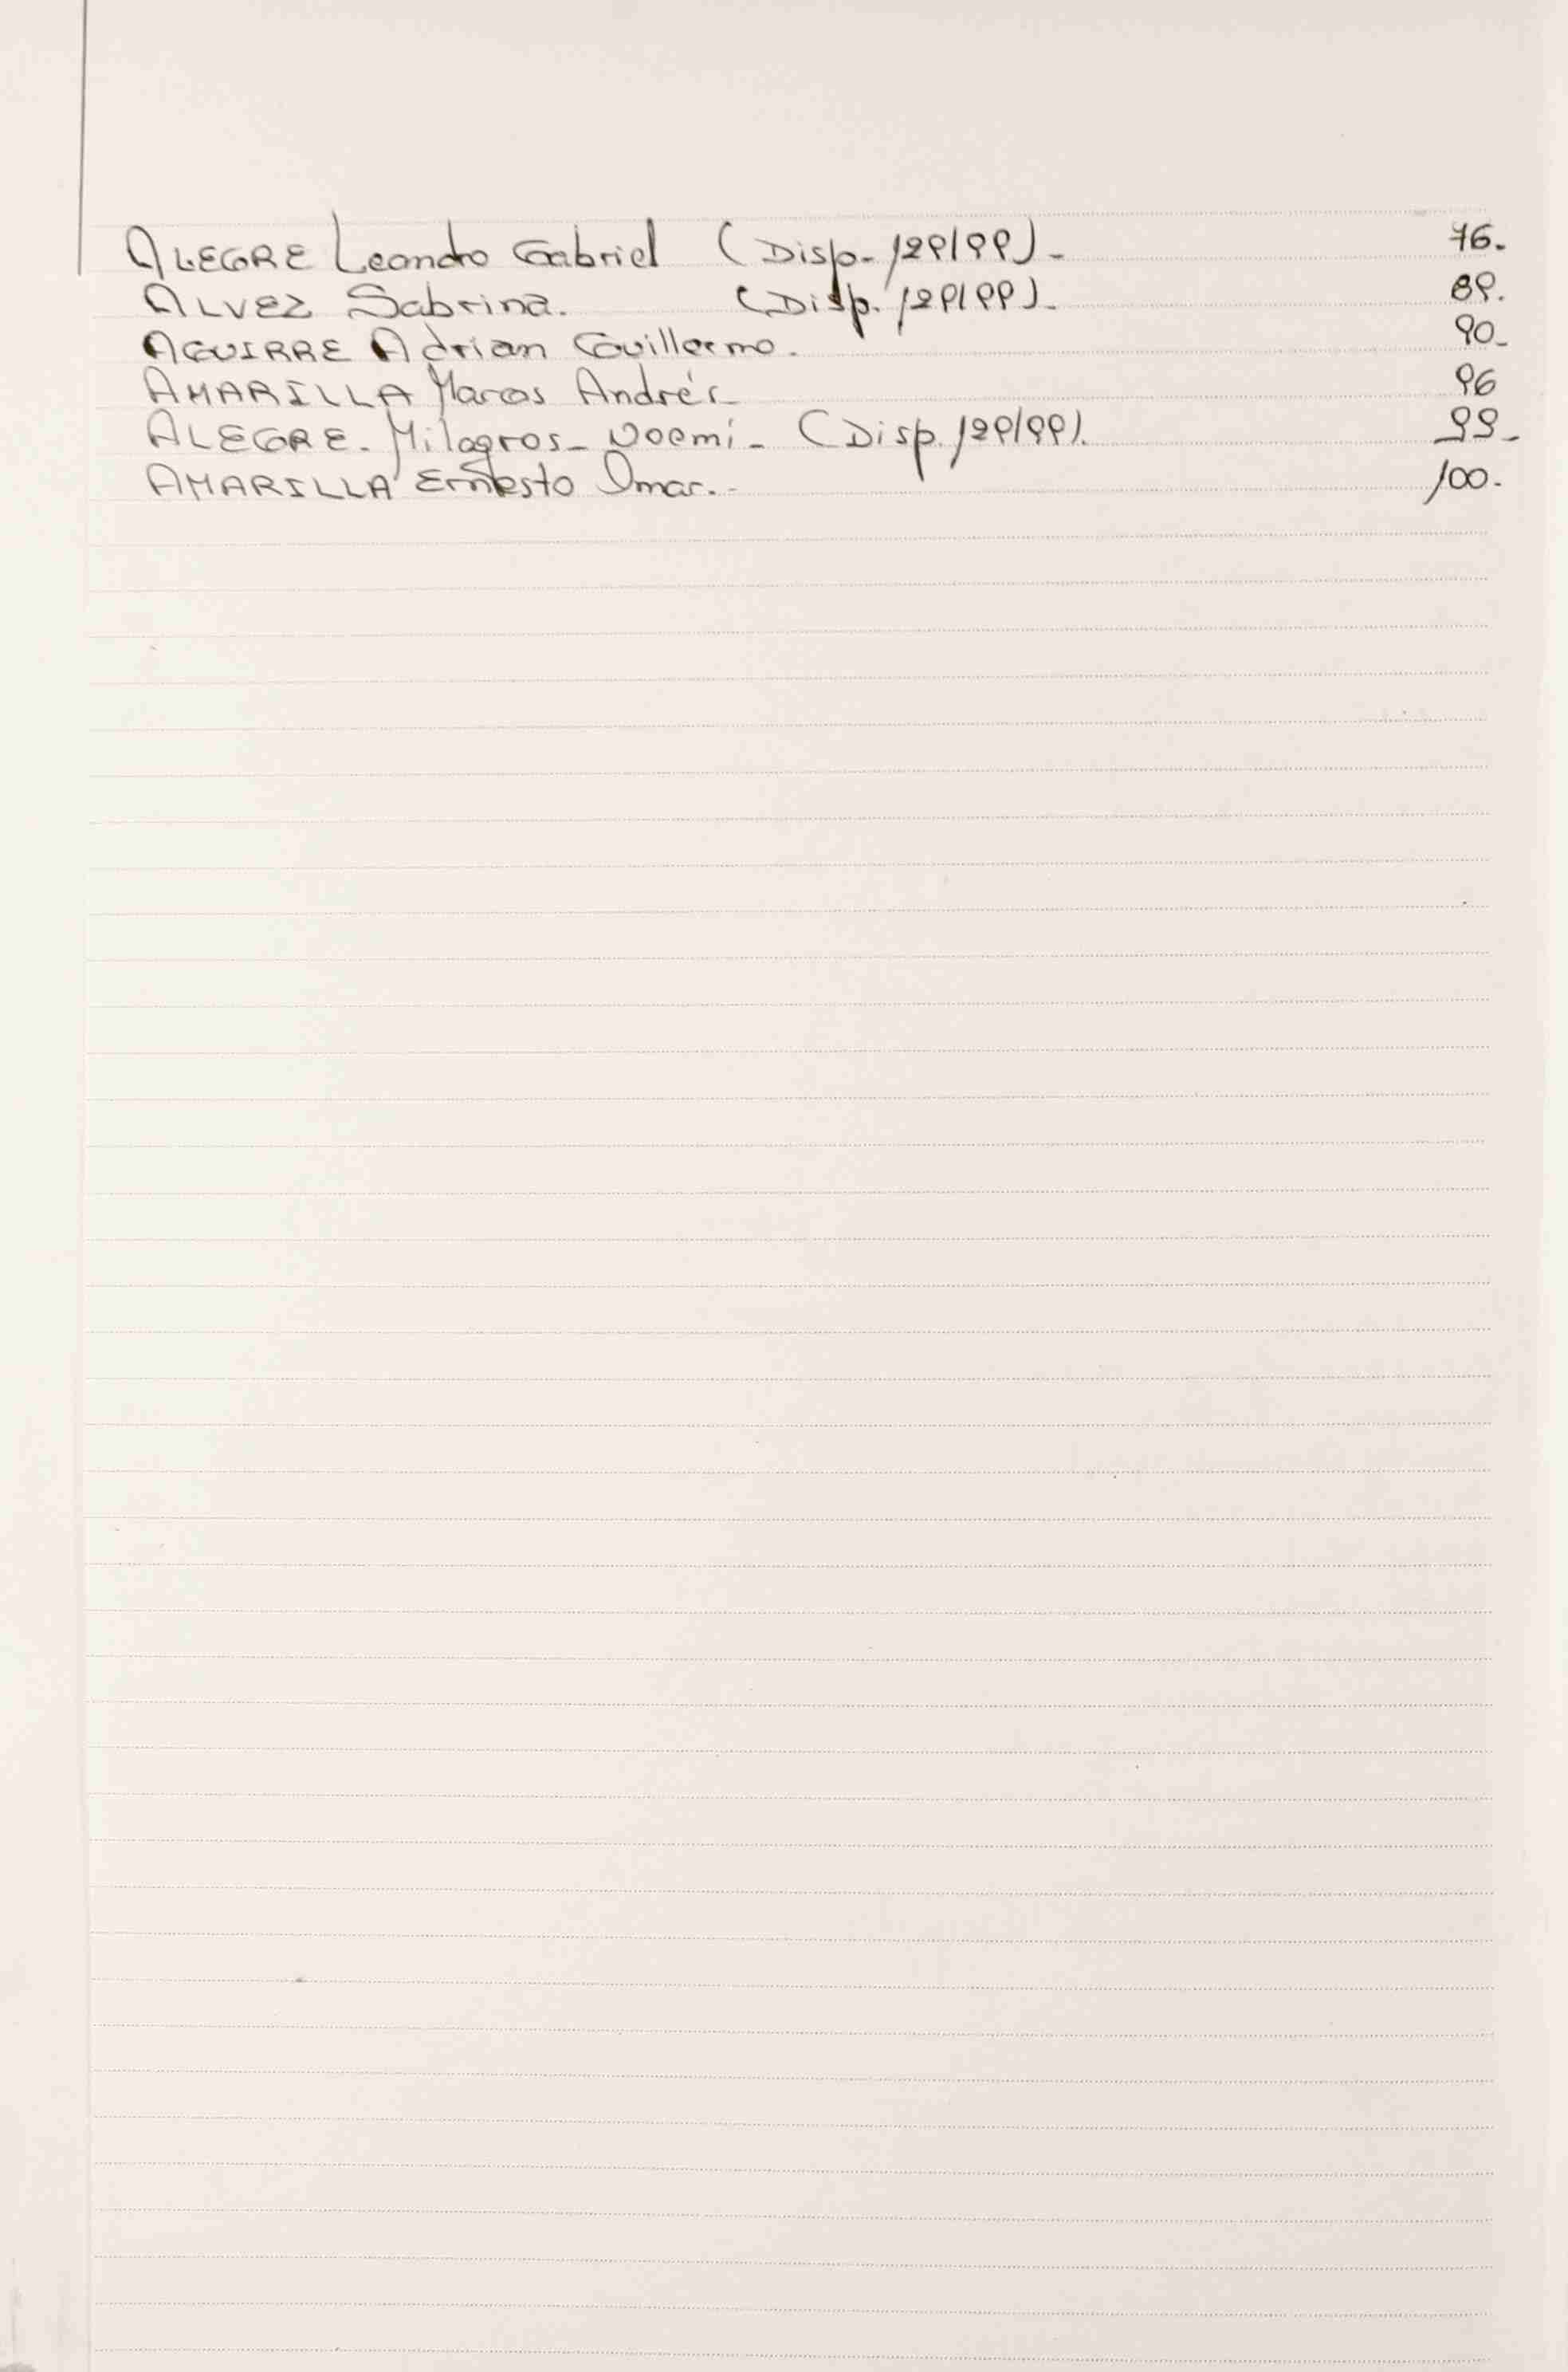 ALEGRE Leandro Gabriel (Disp. 129/99)- 76.
ALVEZ Sabrina. (Disp. 129/99)- 89.
AGUIRRE Adrian Guillermo. 90-
AMARILLA Marcos Andrés- 96
ALEGRE- Milagros- Noemí- (Disp. 129/99). 99-
AMARILLA Ernesto Omar.- 100.